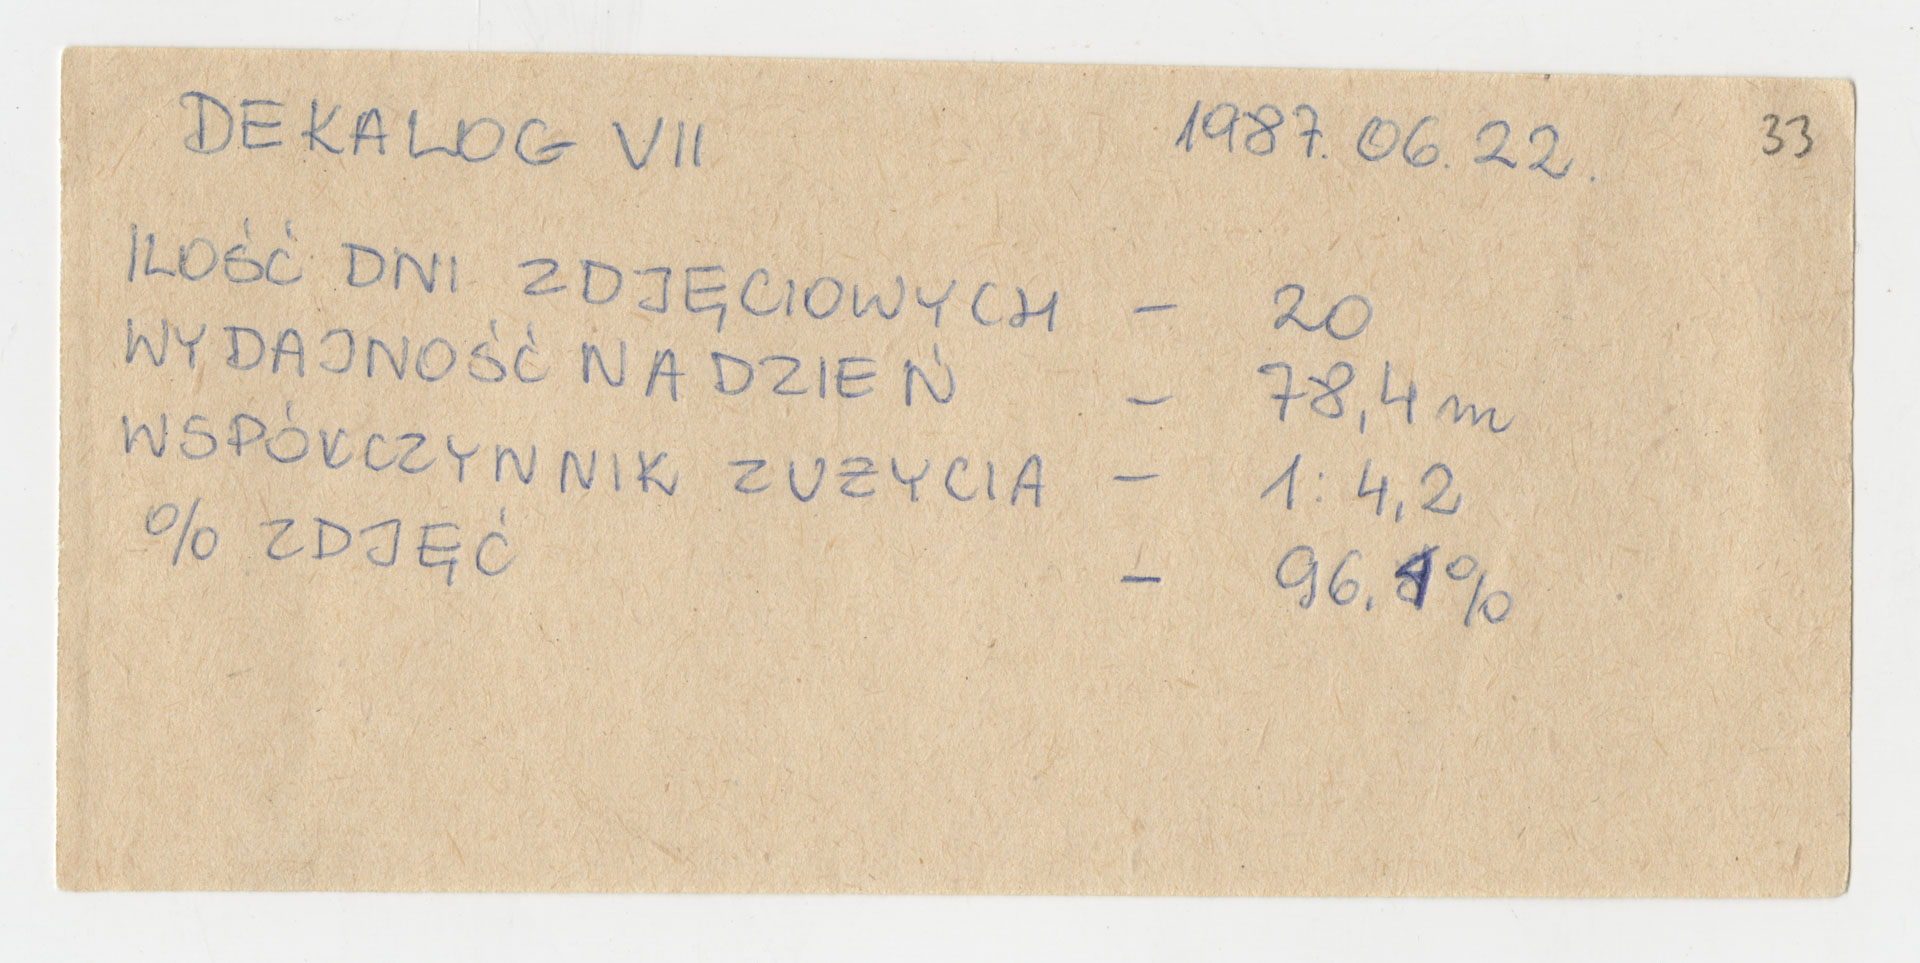 DEKALOG VII 1987.06.22. 33
ILOŚĆ DNI ZDJĘCIOWYCH – 20
WYDAJNOŚĆ NA DZIEŃ – 78,4 m
WSPÓŁCZYNNIK ZUŻYCIA – 1:4,2
% ZDJĘĆ – 96.1%